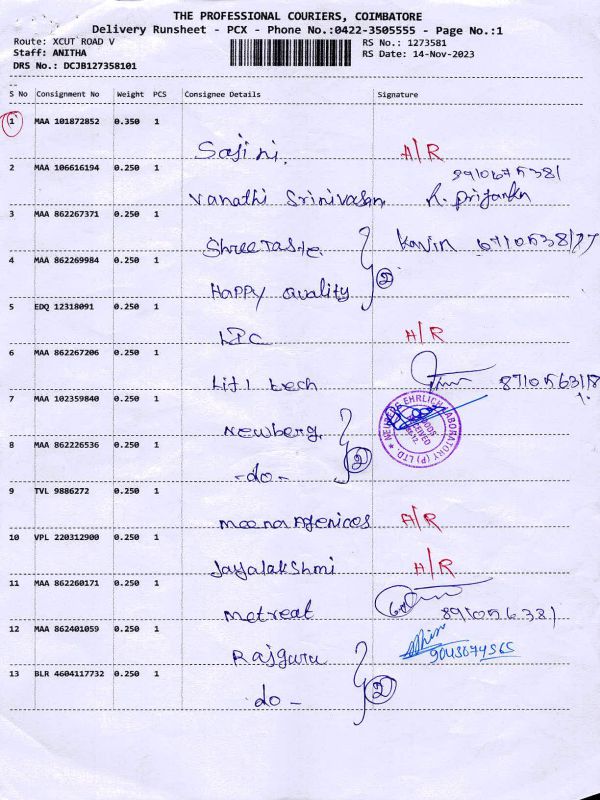 THE PROFESSIONAL COURIERS, COIMBATORE
Delivery Runsheet - PCX - Phone No.:0422-3505555 - Page No.:1
Route: XCUT ROAD V RS No.: 1273581
Staff: ANITHA RS Date: 14-Nov-2023
DRS No.: DCJB127358101
S No Consignment No Weight PCS Consignee Details Signature
1 MAA 101872852 0.350 1
Sajini. A/R
2 MAA 106616194 0.250 1
Vanathi Srinivasan R. Priyanka
3 MAA 862267371 0.250 1
Shree Taste Kavin
4 MAA 862269984 0.250 1
Happy Quality 2
5 EDQ 12318091 0.250 1
A/R
6 MAA 862267206 0.250 1
tech
7 MAA 102359840 0.250 1
Newberg. EHRLICH LABORATORY (P) LTD
8 MAA 862226536 0.250 1
-do- 2
9 TVL 9886272 0.250 1
Meena Agencies A/R
10 VPL 220312900 0.250 1
Jayalakshmi A/R
11 MAA 862260171 0.250 1
Metreat
12 MAA 862401059 0.250 1
Rajguru
13 BLR 4604117732 0.250 1
do - 2